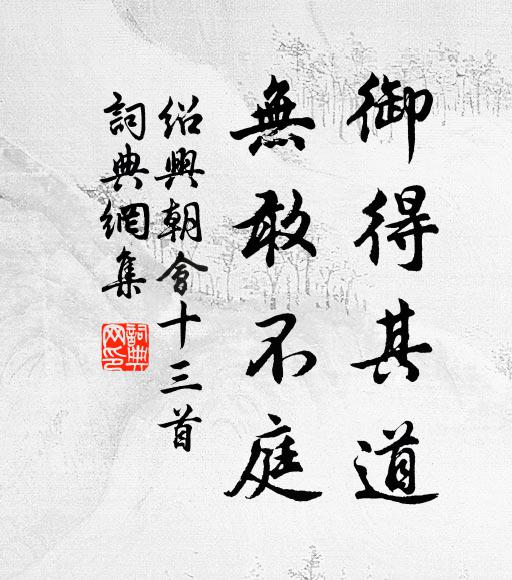 御得其道
無敢不庭
紹興朝會十三首
詞典網集
詞典
网印